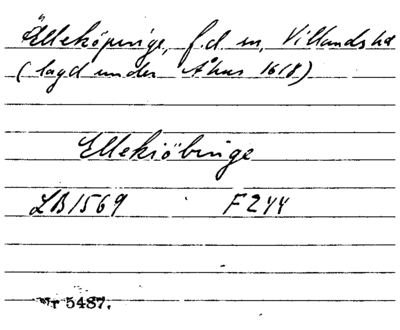 Älleköpinge, f.d. sn, Villands hd
(lagd under Åhus 1618)
Ellekiöbinge
LB 1569 F 244
Nr 5487.